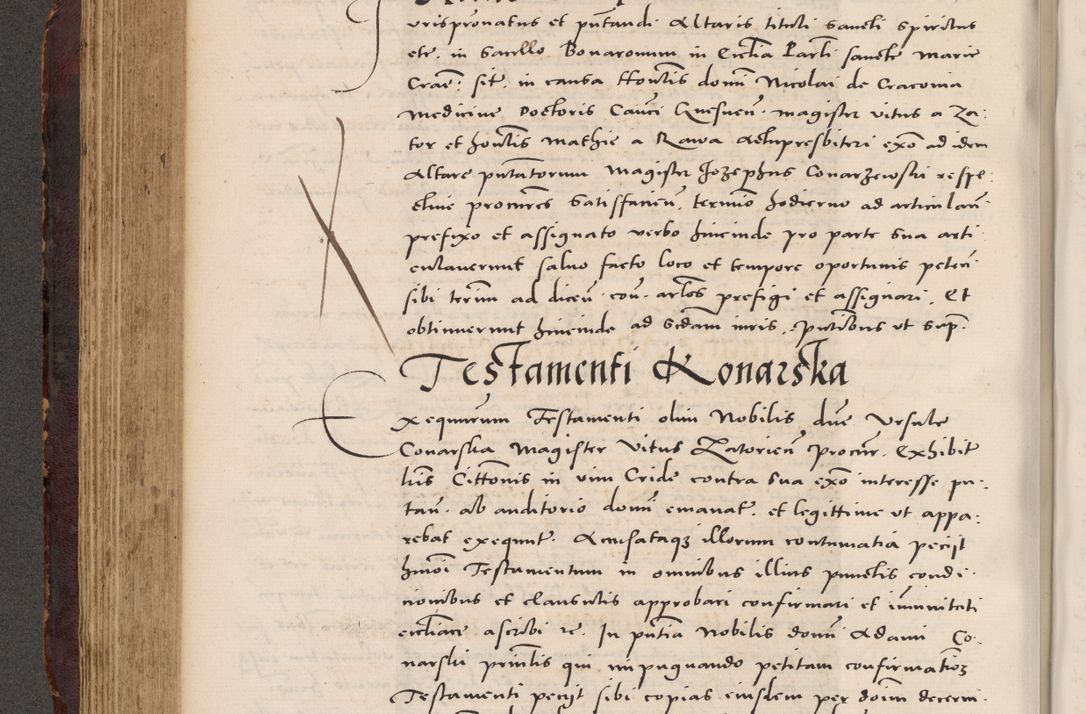 urispronatus et pūtandi Altaris tituli sancti spiritus
etc. in sacello Bonaronum in Ecclīa Parlī sancte Marie
Craē. sitē. in causa Hontīs domī Nicolai de Cracovia
Medicine Doctoris Canci Gnesneñ. magister vitus a Za-
tor et hontīs Mathie a Rawa Altipresbiteri exō ad idem
Altare putatorum Magister Jozephus Conarzewski respe-
ctive procures satisfacieñ. termīo hodierno ad articulañ
prefixo et assignato verbo hincinde pro parte sua arti-
culaverunt salvo facto loco et tempore oportunis peteñ
sibi termī ad diceñ. coñ. artos prefigi et assignari. Et
obtinuerunt hincinde ad sedam iuris. Pntibus ut sup.
Testamenti Konarska
Exequutrum Testamenti olim Nobilis dñe Ursule
Conarska Magister Vitus Zatorieñ procur. Exhibit
liñs Cittonis in vim Cride contra sua exō interesse pu-
tañ. ab auditorio domī emanat. et legittime ut appa-
rebat exequut. Acusataqȝ illorum contumatia peciit
hmōi Testamentum in omnibus illius punctis condi-
nonibus et clausulis approbari confirmari et imunitati
eccliace ascribi rc. In pntīa Nobilis domī Adami Co-
narski prinlis qui impugnando petitam confirmatioȝ
Testamenti peciit sibi copias eiusdem per doīm decerni